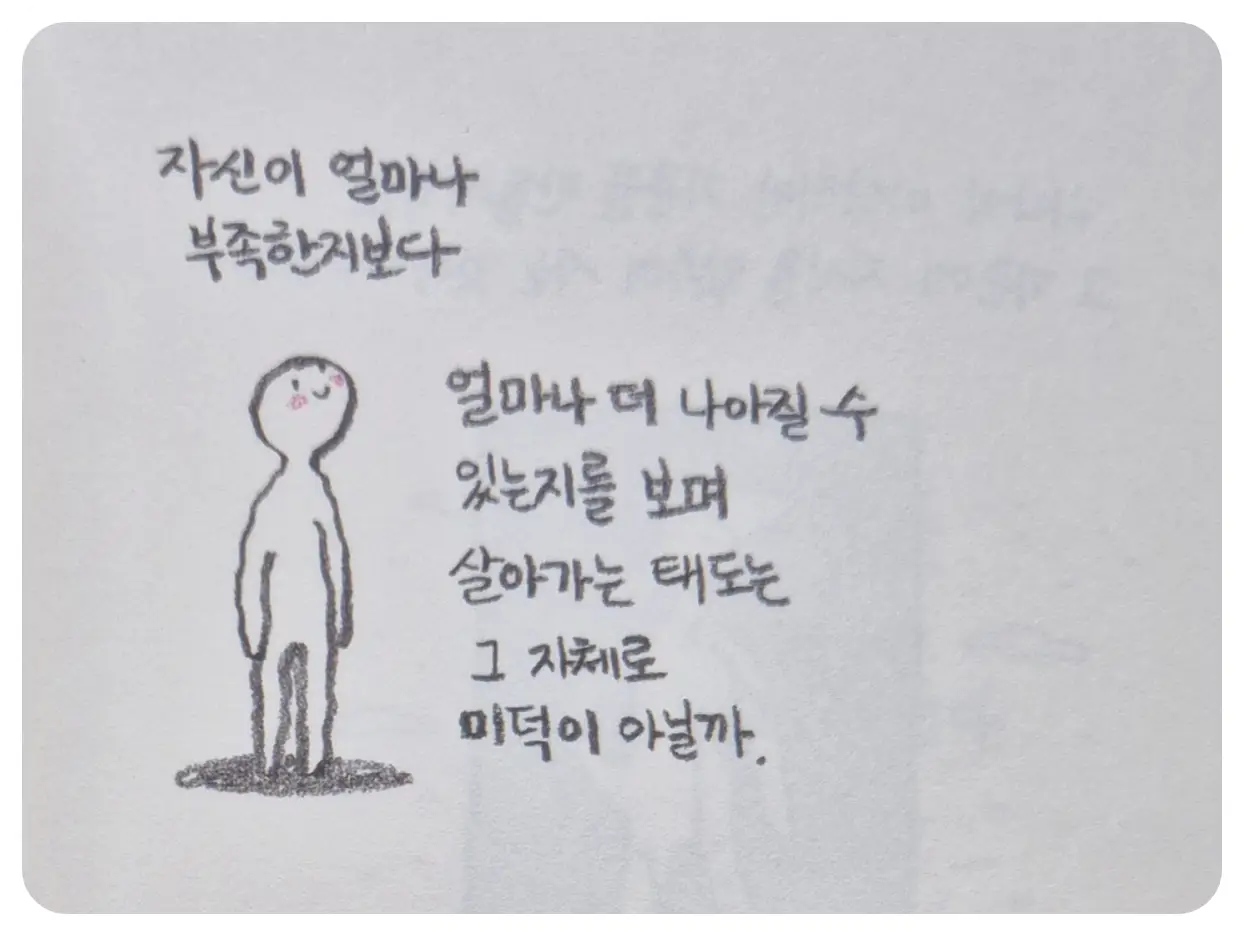 자신이 얼마나
부족한지보다
얼마나 더 나아질 수
있는지를 보며
살아가는 태도는
그 자체로
미덕이 아닐까.